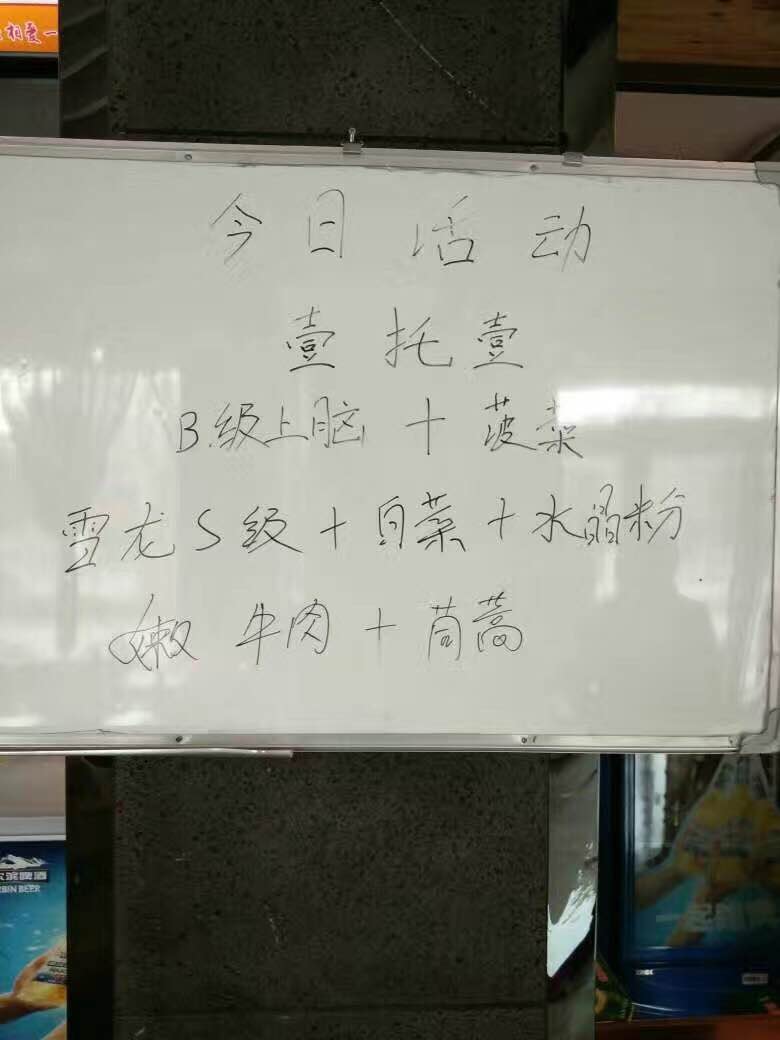 相爱一
今日活动
壹托壹
B.级上脑 + 菠菜
雪龙S级+白菜+水晶粉
嫩牛肉 + 茼蒿
尔滨啤酒
RBIN BEER